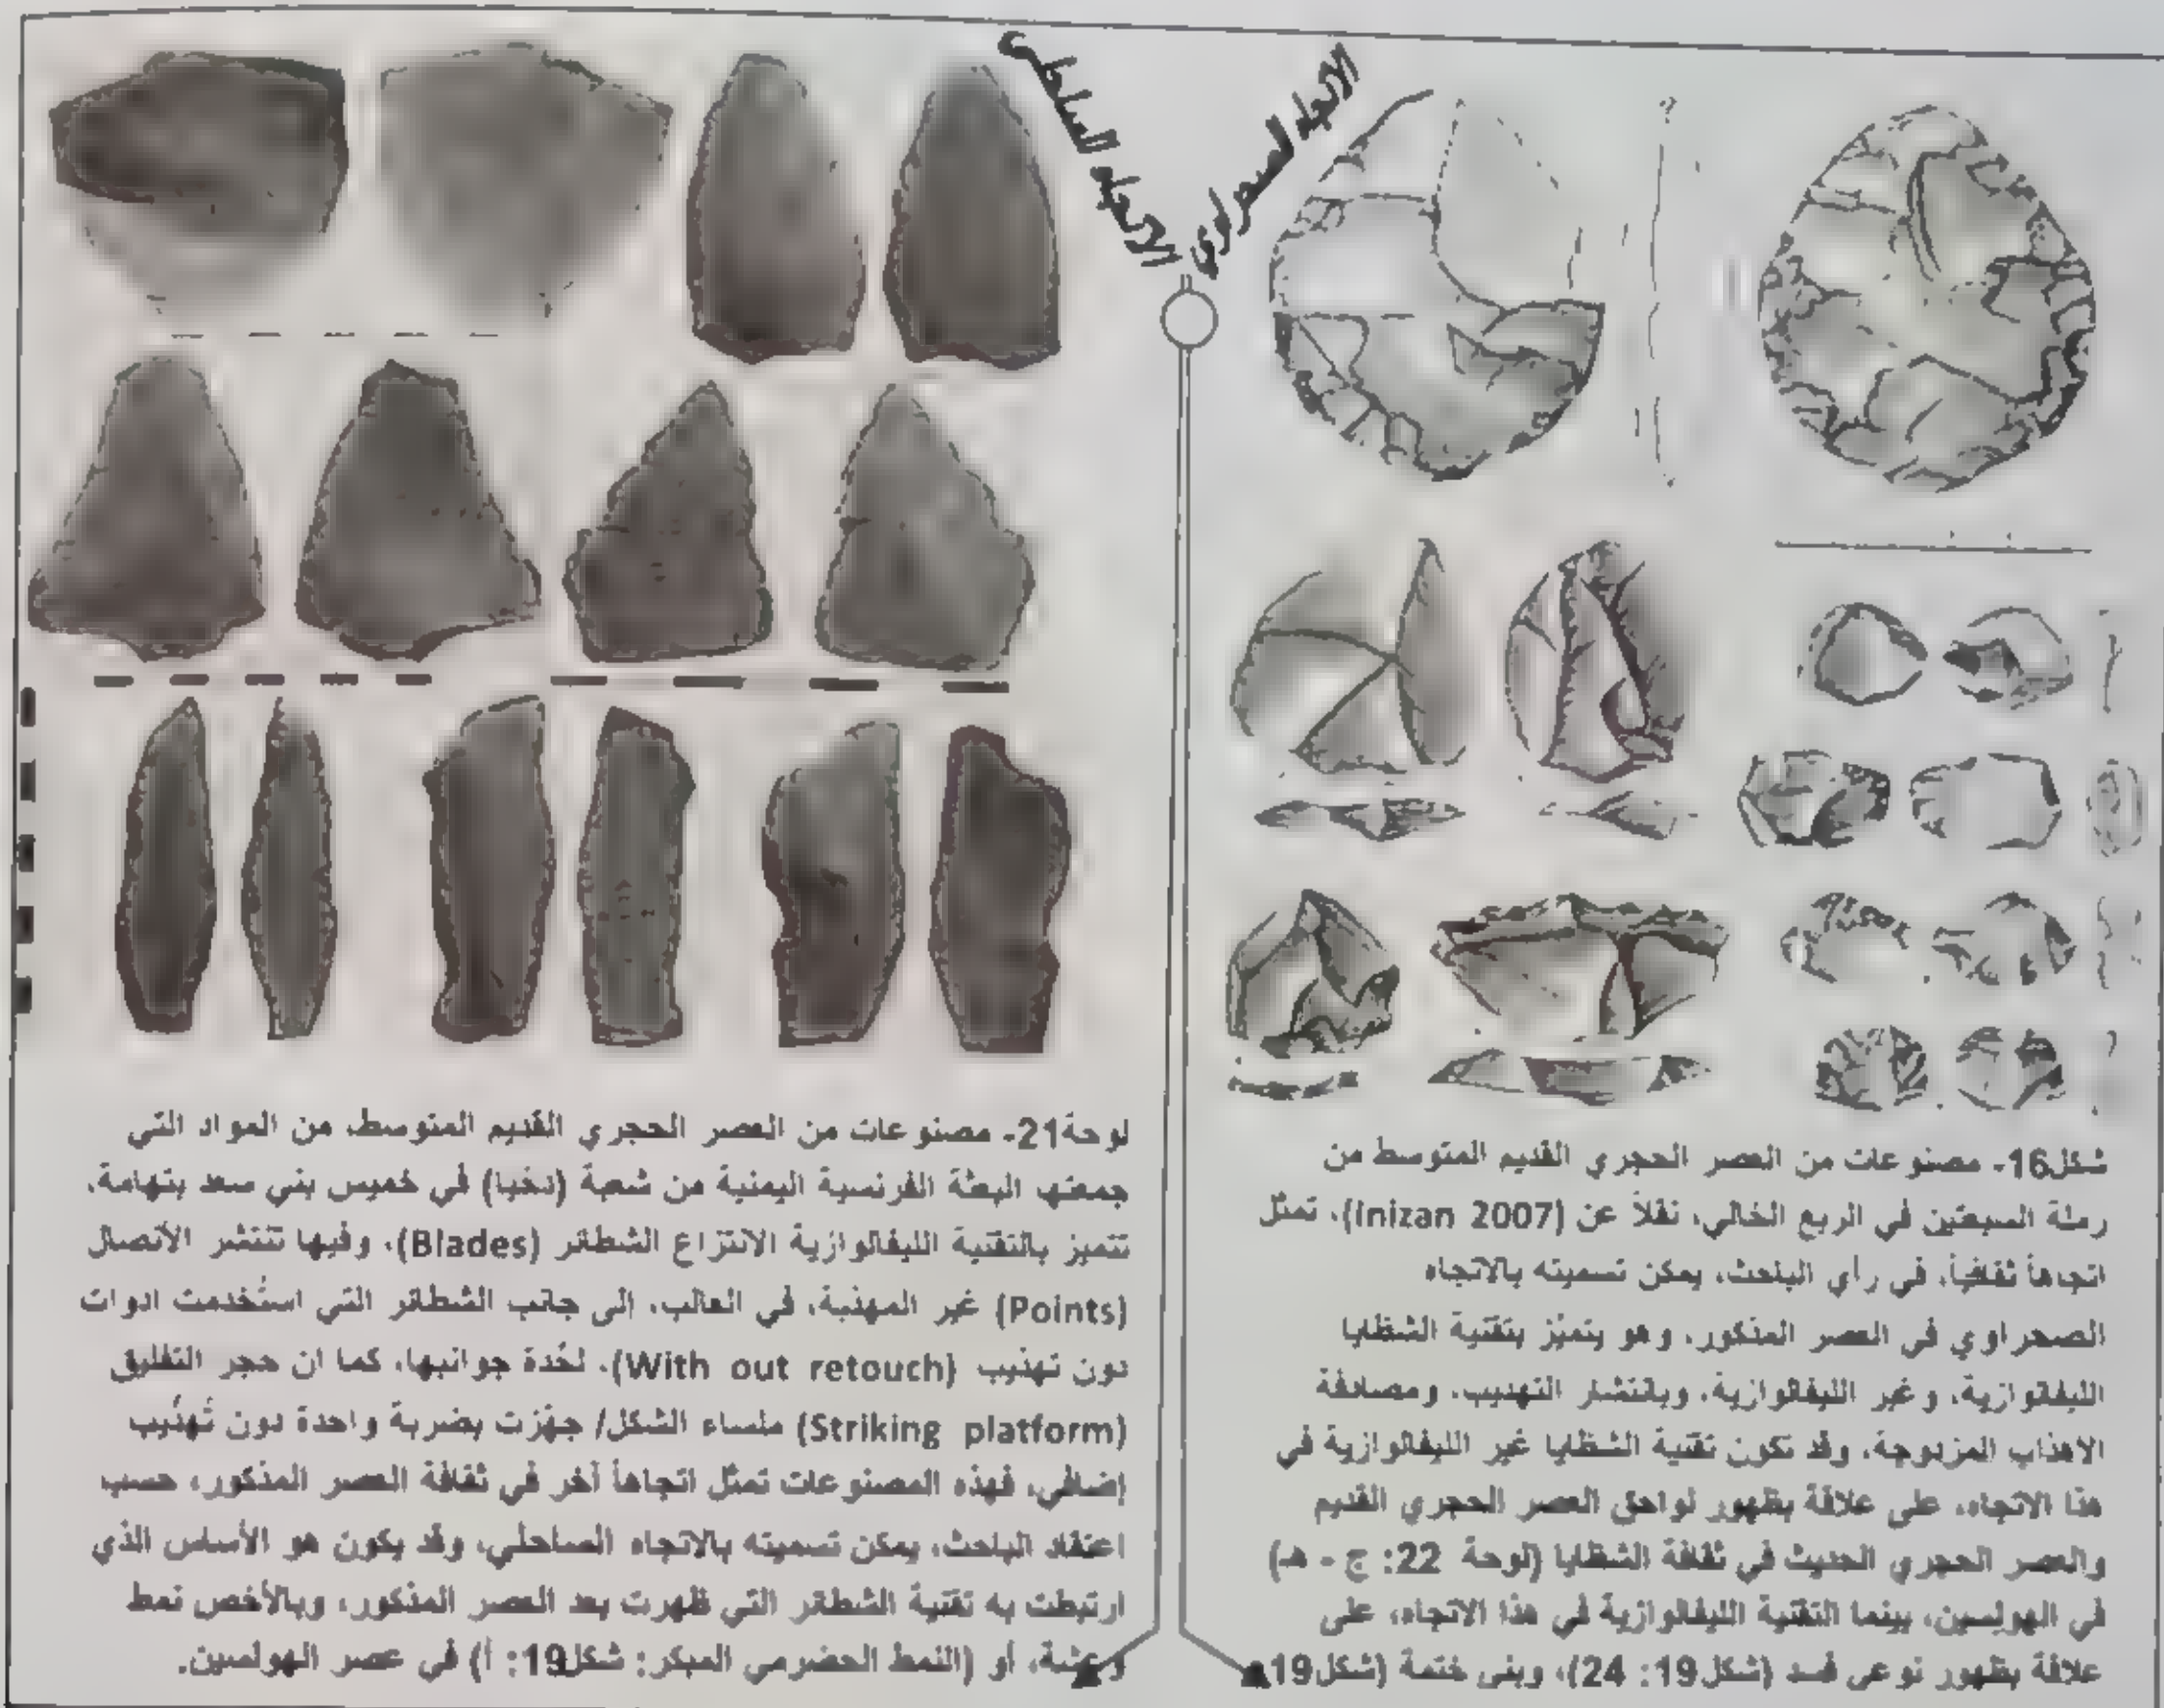 الاتجاه الصحراوي
الاتجاه الساحلي
شكل16- مصنوعات من العصر الحجري القديم المتوسط من
رملة السبعتين في الربع الخالي، نقلاً عن (Inizan 2007)، تمثل
اتجاهاً ثقافياً، في رأي الباحث، يمكن تسميته بالاتجاه
الصحراوي في العصر المذكور، وهو يتميّز بتقنية الشظايا
الليفالوازية، وغير الليفالوازية، وبانتشار التهذيب، ومصادفة
الأهذاب المزدوجة، وقد تكون تقنية الشظايا غير الليفالوازية في
هذا الاتجاه، على علاقة بظهور لواحق العصر الحجري القديم
والعصر الحجري الحديث في ثقافة الشظايا (لوحة 22: ج - هـ)
في الهولسين، بينما التقنية الليفالوازية في هذا الاتجاه، على
علاقة بظهور نوعي فسد (شكل19: 24)، وبني ختمة (شكل19
لوحة21- مصنوعات من العصر الحجري القديم المتوسط، من المواد التي
جمعتها البعثة الفرنسية اليمنية من شعبة (دخيا) في خميس بني سعد بتهامة،
تتميز بالتقنية الليفالوازية الانتزاع الشطائر (Blades)، وفيها تنتشر الأنصال
(Points) غير المهذبة، في الغالب، إلى جانب الشطائر التي استُخدمت ادوات
دون تهذيب (With out retouch)، لحُدة جوانبها، كما ان حجر التفليق
(Striking platform) ملساء الشكل/ جهّزت بضربة واحدة دون تُهذّيب
إضافي، فهذه المصنوعات تمثل اتجاهاً آخر في ثقافة العصر المذكور، حسب
اعتقاد الباحث، يمكن تسميته بالاتجاه الساحلي، وقد يكون هو الأساس الذي
ارتبطت به تقنية الشطائر التي ظهرت بعد العصر المذكور، وبالأخص نمط
وعشة، أو (النمط الحضرمي المبكر: شكل19: أ) في عصر الهولسين.